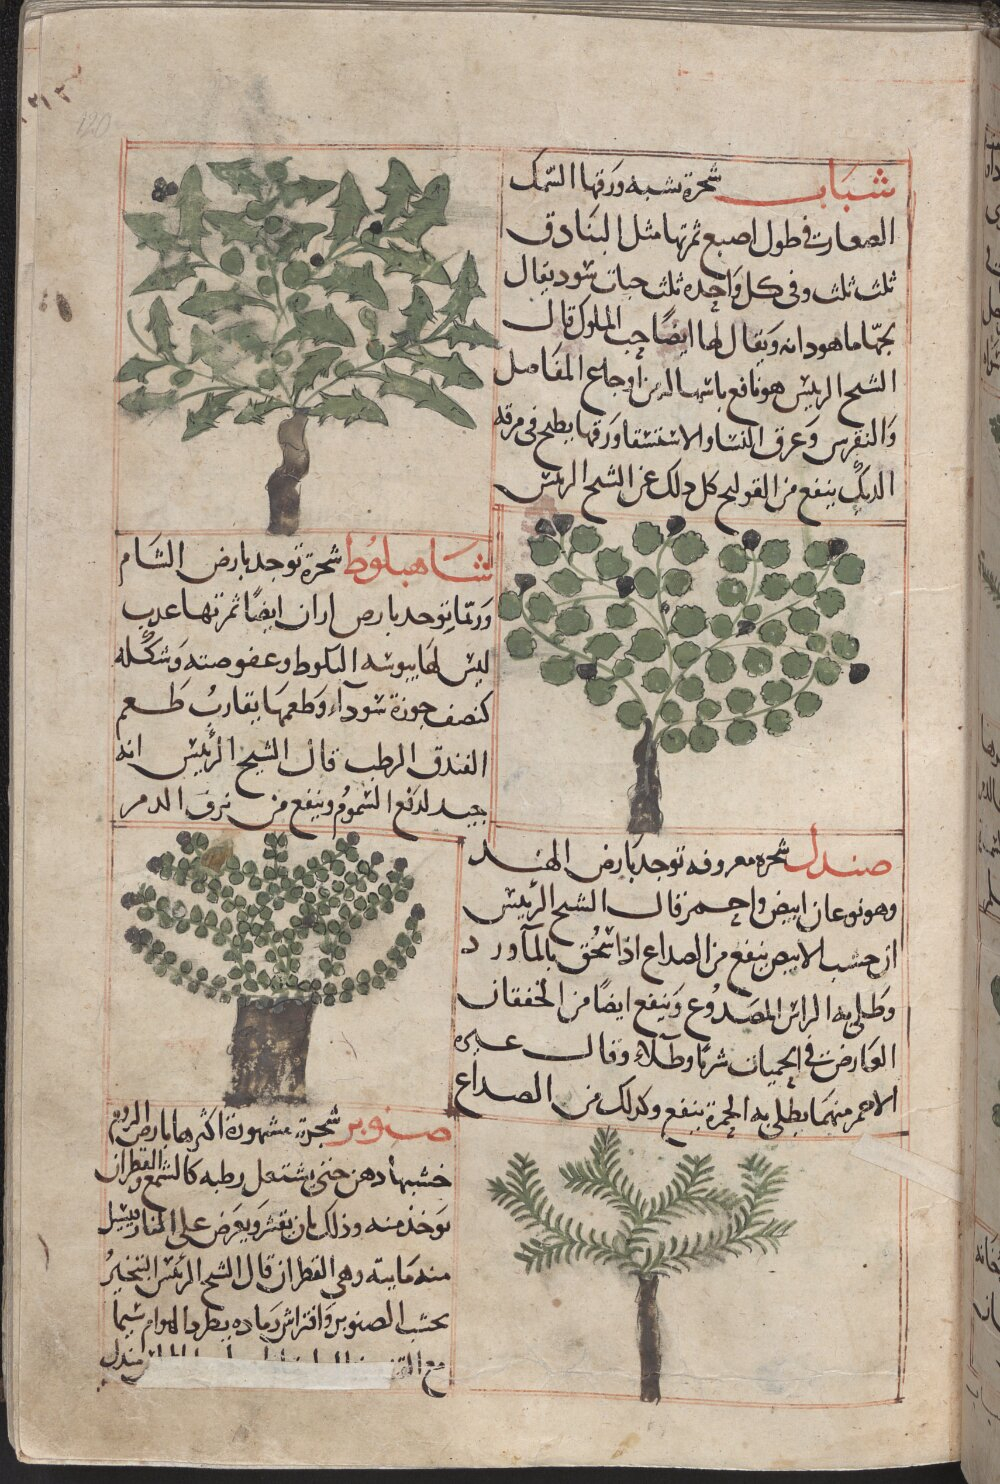 شباب شجرة يشبه ورقها السمك
الصغار في طول اصبع ثمرتها مثل البنادق
ثلث ثلث وفي كل واحده ثلث حبات سود يقال
ماهودانه ويقال لها ايضا حب الملوك قال
الشيخ الرئيس هو نافع باسهاله من اوجاع المفاصل
والنقرس وعرق النسا والاستسقا ورقها يطبخ في مرقه
الديك ينفع من القولنج كل ذلك عن الشيخ الرئيس
شاهبلوط شجرة توجد بارض الشام
وربما توجد بارض اران ايضا ثمرتها عذب
ليس لها يبوسه البلوط وعفوصته وشكله
كنصف جوزة سودآء وطعمها يقارب طعم
الفندق الرطب قال الشيخ الرئيس انه
جيد لدفع السموم وينفع من نزف الدم
صندل شجره معروفه توجد بارض الهند
وهو نوعان ابيض واحمر قال الشيخ الرئيس
ان خشب الابيض ينفع من الصداع اذا سحق بالمآورد
وطلي به الراس المصدوع وينفع ايضا من الخفقان
العارض في الحميات شربا وطلاء وقال غيره
الاحمر منهما يطلي به الحمرة ينفع وكذلك من الصداع
صنوبر شجرة مشهورة اكثرها بارض الروم
خشبها دهن حتى يشتعل رطبه كالشمع والقطران
يوخذ منه وذلك بان يقشر ويعرض على النار يسيل
منه مايته وهي القطران قال الشيخ الرئيس التبخير
بخشب الصنوبر وافتراش رماده يطرد الهوام سيما
مع